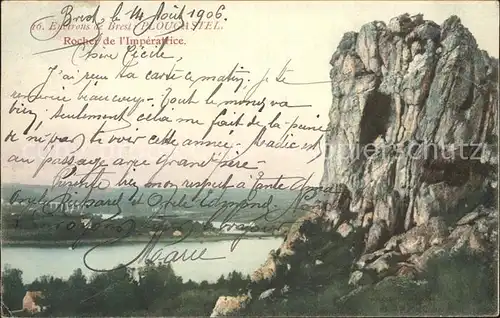 Brest, le 14 Août 1906.
16. Environs de Brest. PLOUGASTEL.
Rocher de l'Impératrice.
Chère Cécile,
J'ai reçu ta carte ce matin, je te
remercie beaucoup. Tout le monde va
bien, seulement cela me fait de la peine
de ne pas te voir cette année.
au passage avec Grand'mère.
Présente bien mon respect à Tante
Oncle Richard et Oncle Edmond
Marie